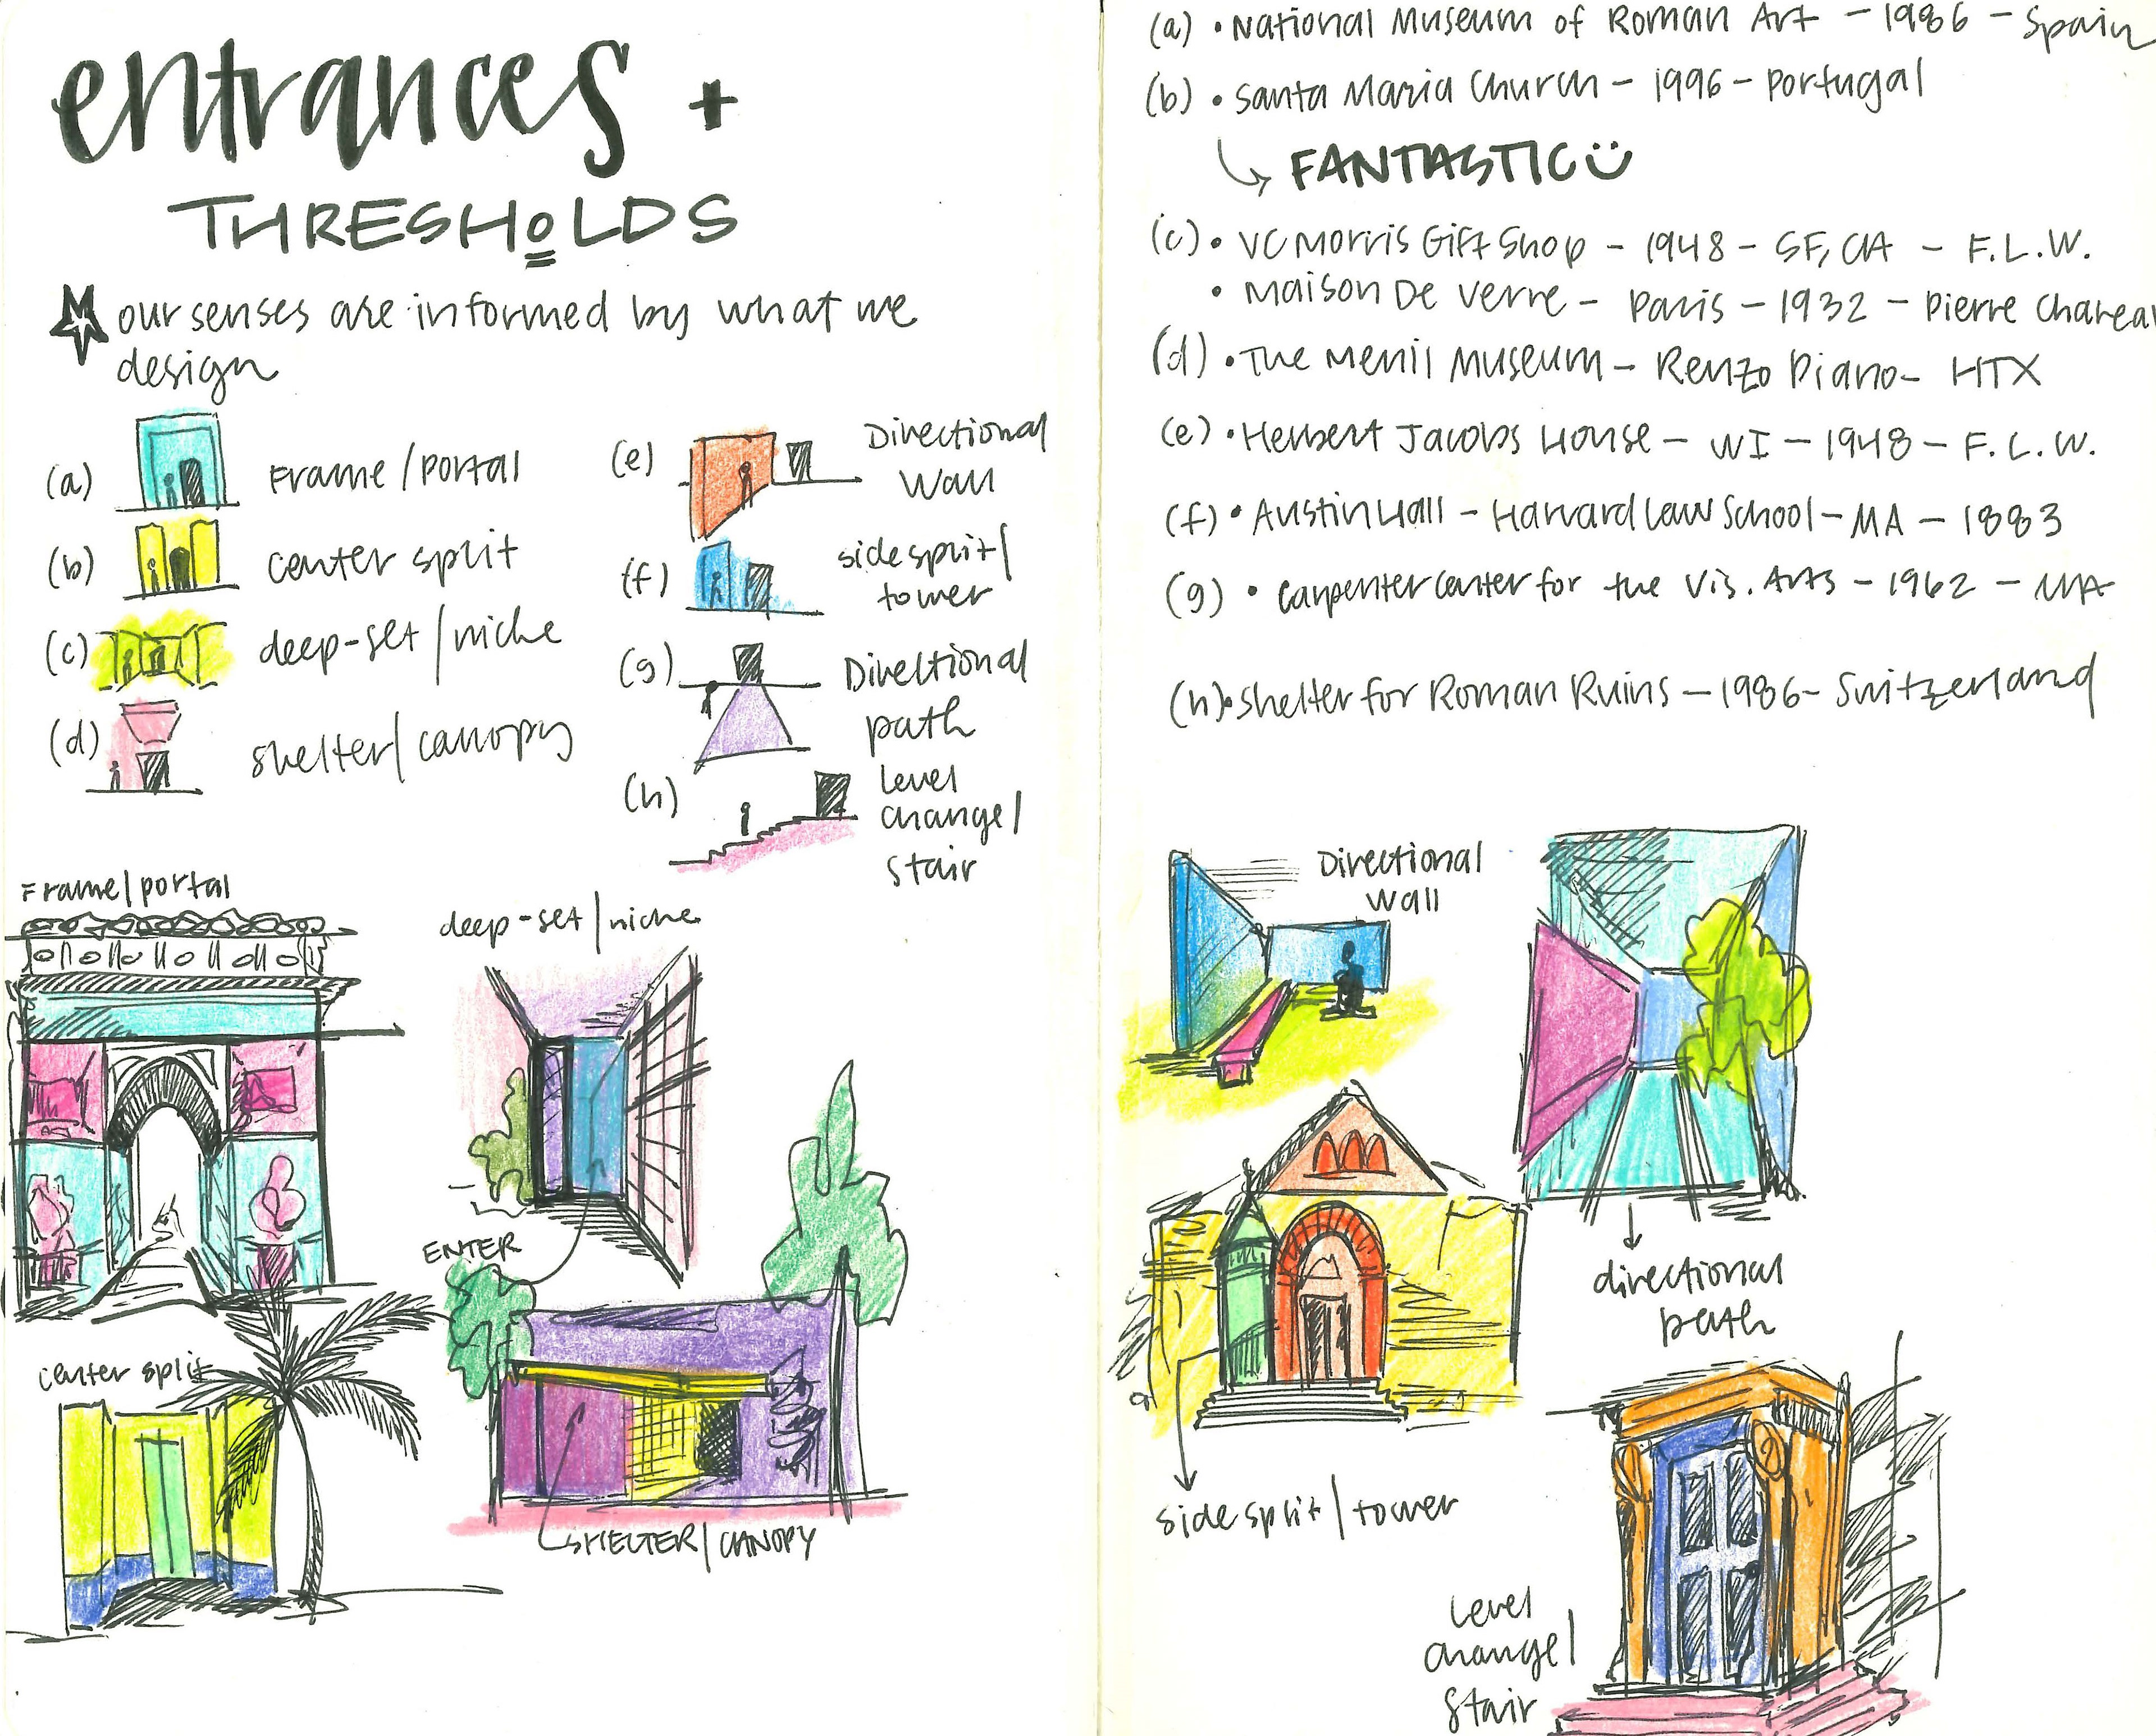 entrances +
THRESHOLDS
our senses are informed by what we
design
(a) Frame/Portal
(b) center split
(c) deep-set/niche
(d) shelter/canopy
(e) Directional
Wall
(f) side split/
tower
(g) Directional
path
(h) level
change/
stair
Frame/portal
deep-set/niche
ENTER
center split
SHELTER/CANOPY
(a) • National Museum of Roman Art - 1986 - Spain
(b) • Santa Maria Church - 1996 - Portugal
FANTASTIC
(c) • VC Morris Gift Shop - 1948 - SF, CA - F.L.W.
• Maison De Verre - Paris - 1932 - Pierre Chareau
(d) • The Menil Museum - Renzo Piano - HTX
(e) • Herbert Jacobs House - WI - 1948 - F.L.W.
(f) • Austin Hall - Harvard Law School - MA - 1883
(g) • Carpenter Center for the Vis. Arts - 1962 - MA
(h) • Shelter for Roman Ruins - 1986 - Switzerland
Directional
Wall
directional
path
side split/tower
level
change/
stair